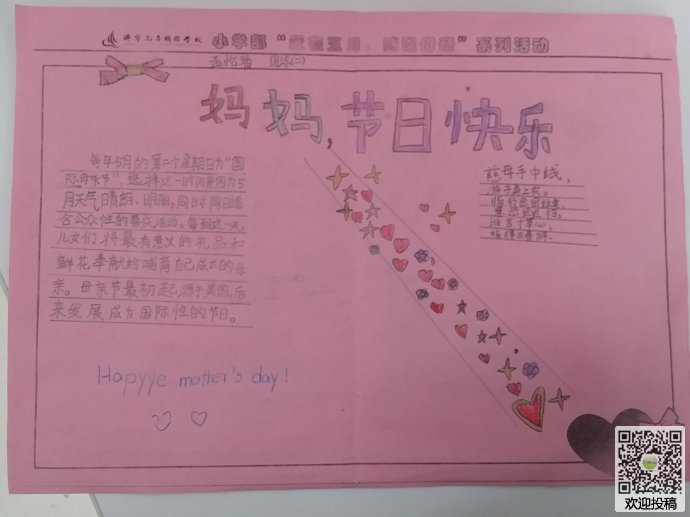 济宁孔子国际学校 小学部 系列活动
妈妈,节日快乐
每年5月的第二个星期日为“国
际母亲节”选择这一时间是因为5
月天气晴朗、明丽,同时周日适
合公众性的喜庆活动。每到这一天,
儿女们将最有意义的礼品和
鲜花奉献给哺育自己成长的母
亲。母亲节最初起源于美国,后
来发展成为国际性的节日。
慈母手中线,
游子身上衣。
临行密密缝,
意恐迟迟归。
谁言寸草心,
报得三春晖。
Happyye mother's day!
欢迎投稿